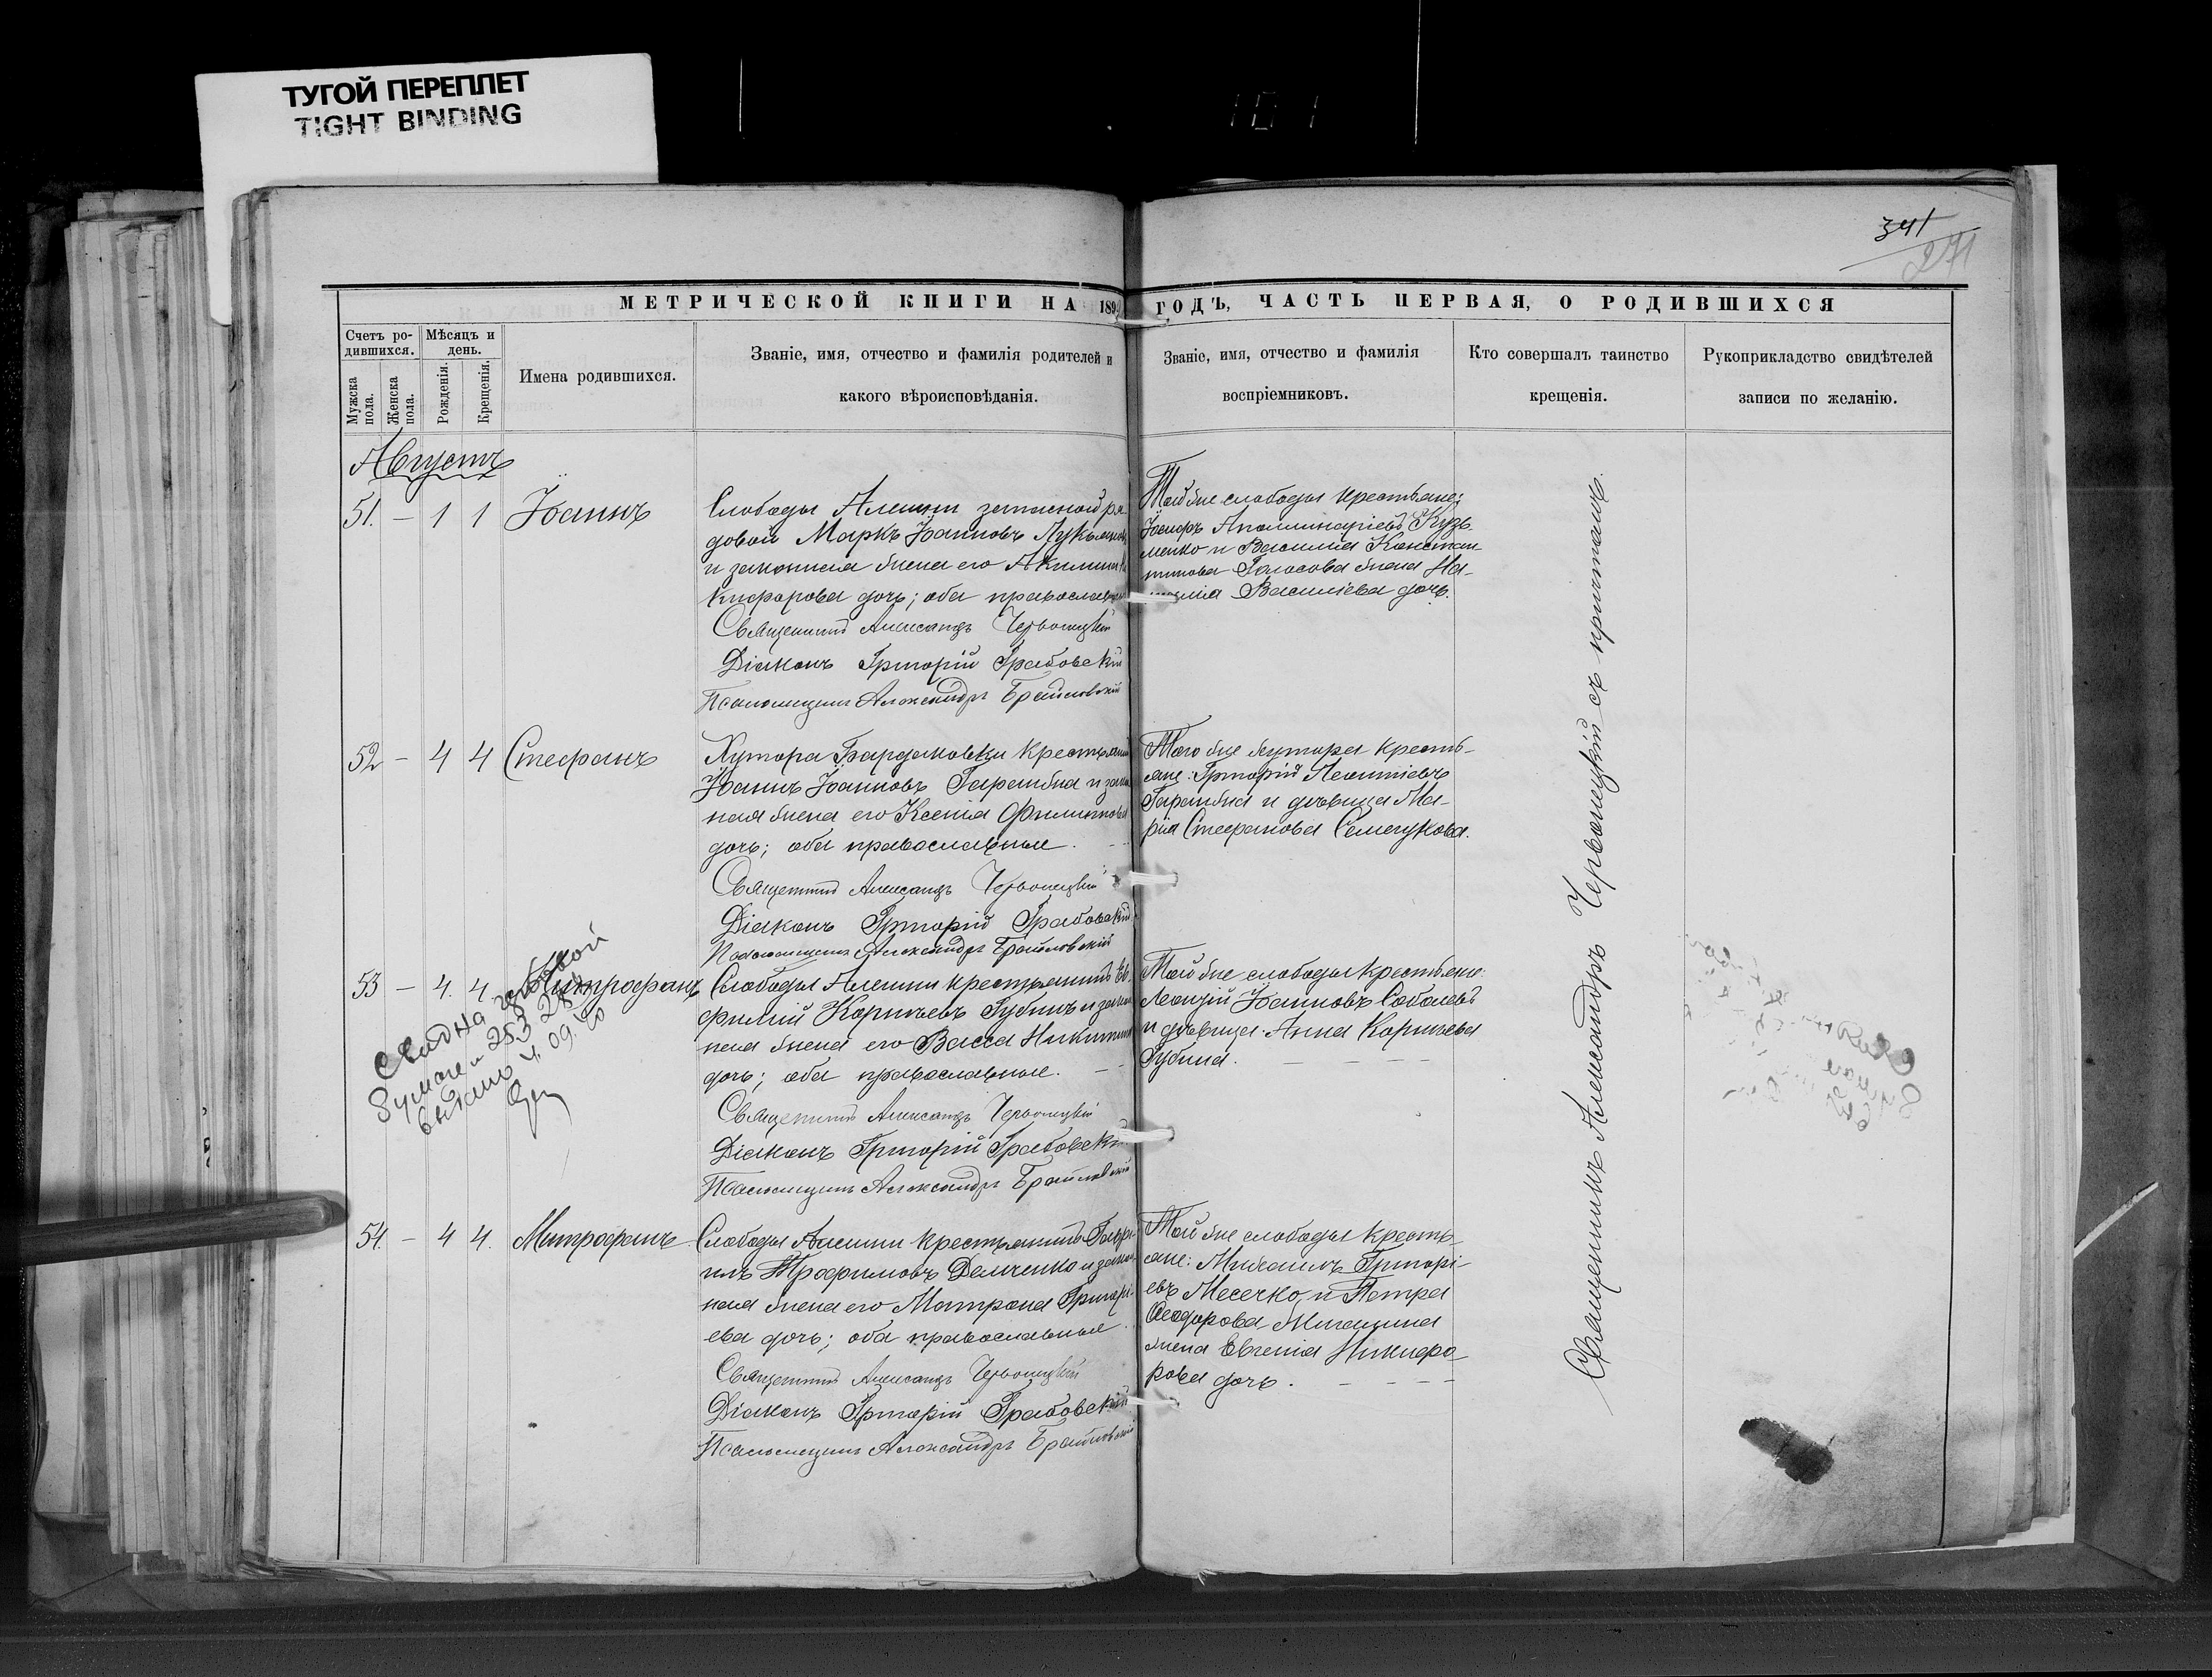 ТУГОЙ ПЕРЕПЛЕТ
TIGHT BINDING
341
271
МЕТРИЧЕСКОЙ КНИГИ НА 189
ГОДЪ, ЧАСТЬ ПЕРВАЯ, О РОДИВШИХСЯ
Счетъ ро-
дившихся.
Мужска пола.
Женска пола.
Мѣсяцъ и
день.
Рожденія.
Крещенія.
Имена родившихся.
Званіе, имя, отчество и фамилія родителей и
какого вѣроисповѣданія.
Званіе, имя, отчество и фамилія
воспріемниковъ.
Кто совершалъ таинство
крещенія.
Рукоприкладство свидѣтелей
записи по желанію.
Августъ
51. - 1 1 Іоаннъ
Слободы Алешни запасной ря
довой Маркъ Іоанновъ Лукьянов
и законная жена его Акилина Ни
кифорова дочь; оба православн
Священникъ Александръ Червонецкій
Діаконъ Григорій Грабовскій
Псаломщикъ Александръ Браиловскій
Той же слободы крестьяне:
Іосифъ Аполлинаріевъ Кузь
менко и Василія Констан
тинова Голосова жена На
талія Василіева дочь.
52 - 4 4 Стефанъ
Хутора Бардаковки крестьянин
Іоаннъ Іоанновъ Гаражна и закон
ная жена его Ксенія Филиппова
дочь; оба православные.
Священникъ Александръ Червонецкій
Діаконъ Григорій Грабовскій
Псаломщикъ Александръ Браиловскій
Того же хутора кресть-
яне: Григорій Леонтіевъ
Гаражна и дѣвица Ма-
рія Стефанова Семенукова.
53 - 4. 4. Митрофанъ
Слободы Алешни крестьянинъ Ев
фимій Корніевъ Губинъ и закон
ная жена его Васса Никитина
дочь; оба православные.
Священникъ Александръ Червонецкій
Діаконъ Григорій Грабовскій
Псаломщикъ Александръ Браиловскій
Той же слободы крестьяне:
Леонтій Іоанновъ Соболевъ
и дѣвица Анна Корніева
Губина.
Свид на гербовой
бумаге 253 28
выдано 09
54. - 4 4. Митрофанъ
Слободы Алешни крестьянинъ Гаври
илъ Трофимовъ Демченко и закон
ная жена его Матрона Григорі-
ева дочь; оба православные.
Священникъ Александръ Червонецкій
Діаконъ Григорій Грабовскій
Псаломщикъ Александръ Браиловскій
Той же слободы кресть-
яне: Михаилъ Григорі-
евъ Месечко и Петра
Ѳеодорова Мигашина
жена Евгенія Никифо-
рова дочь.
Священникъ Александръ Червонецкій съ причтомъ.